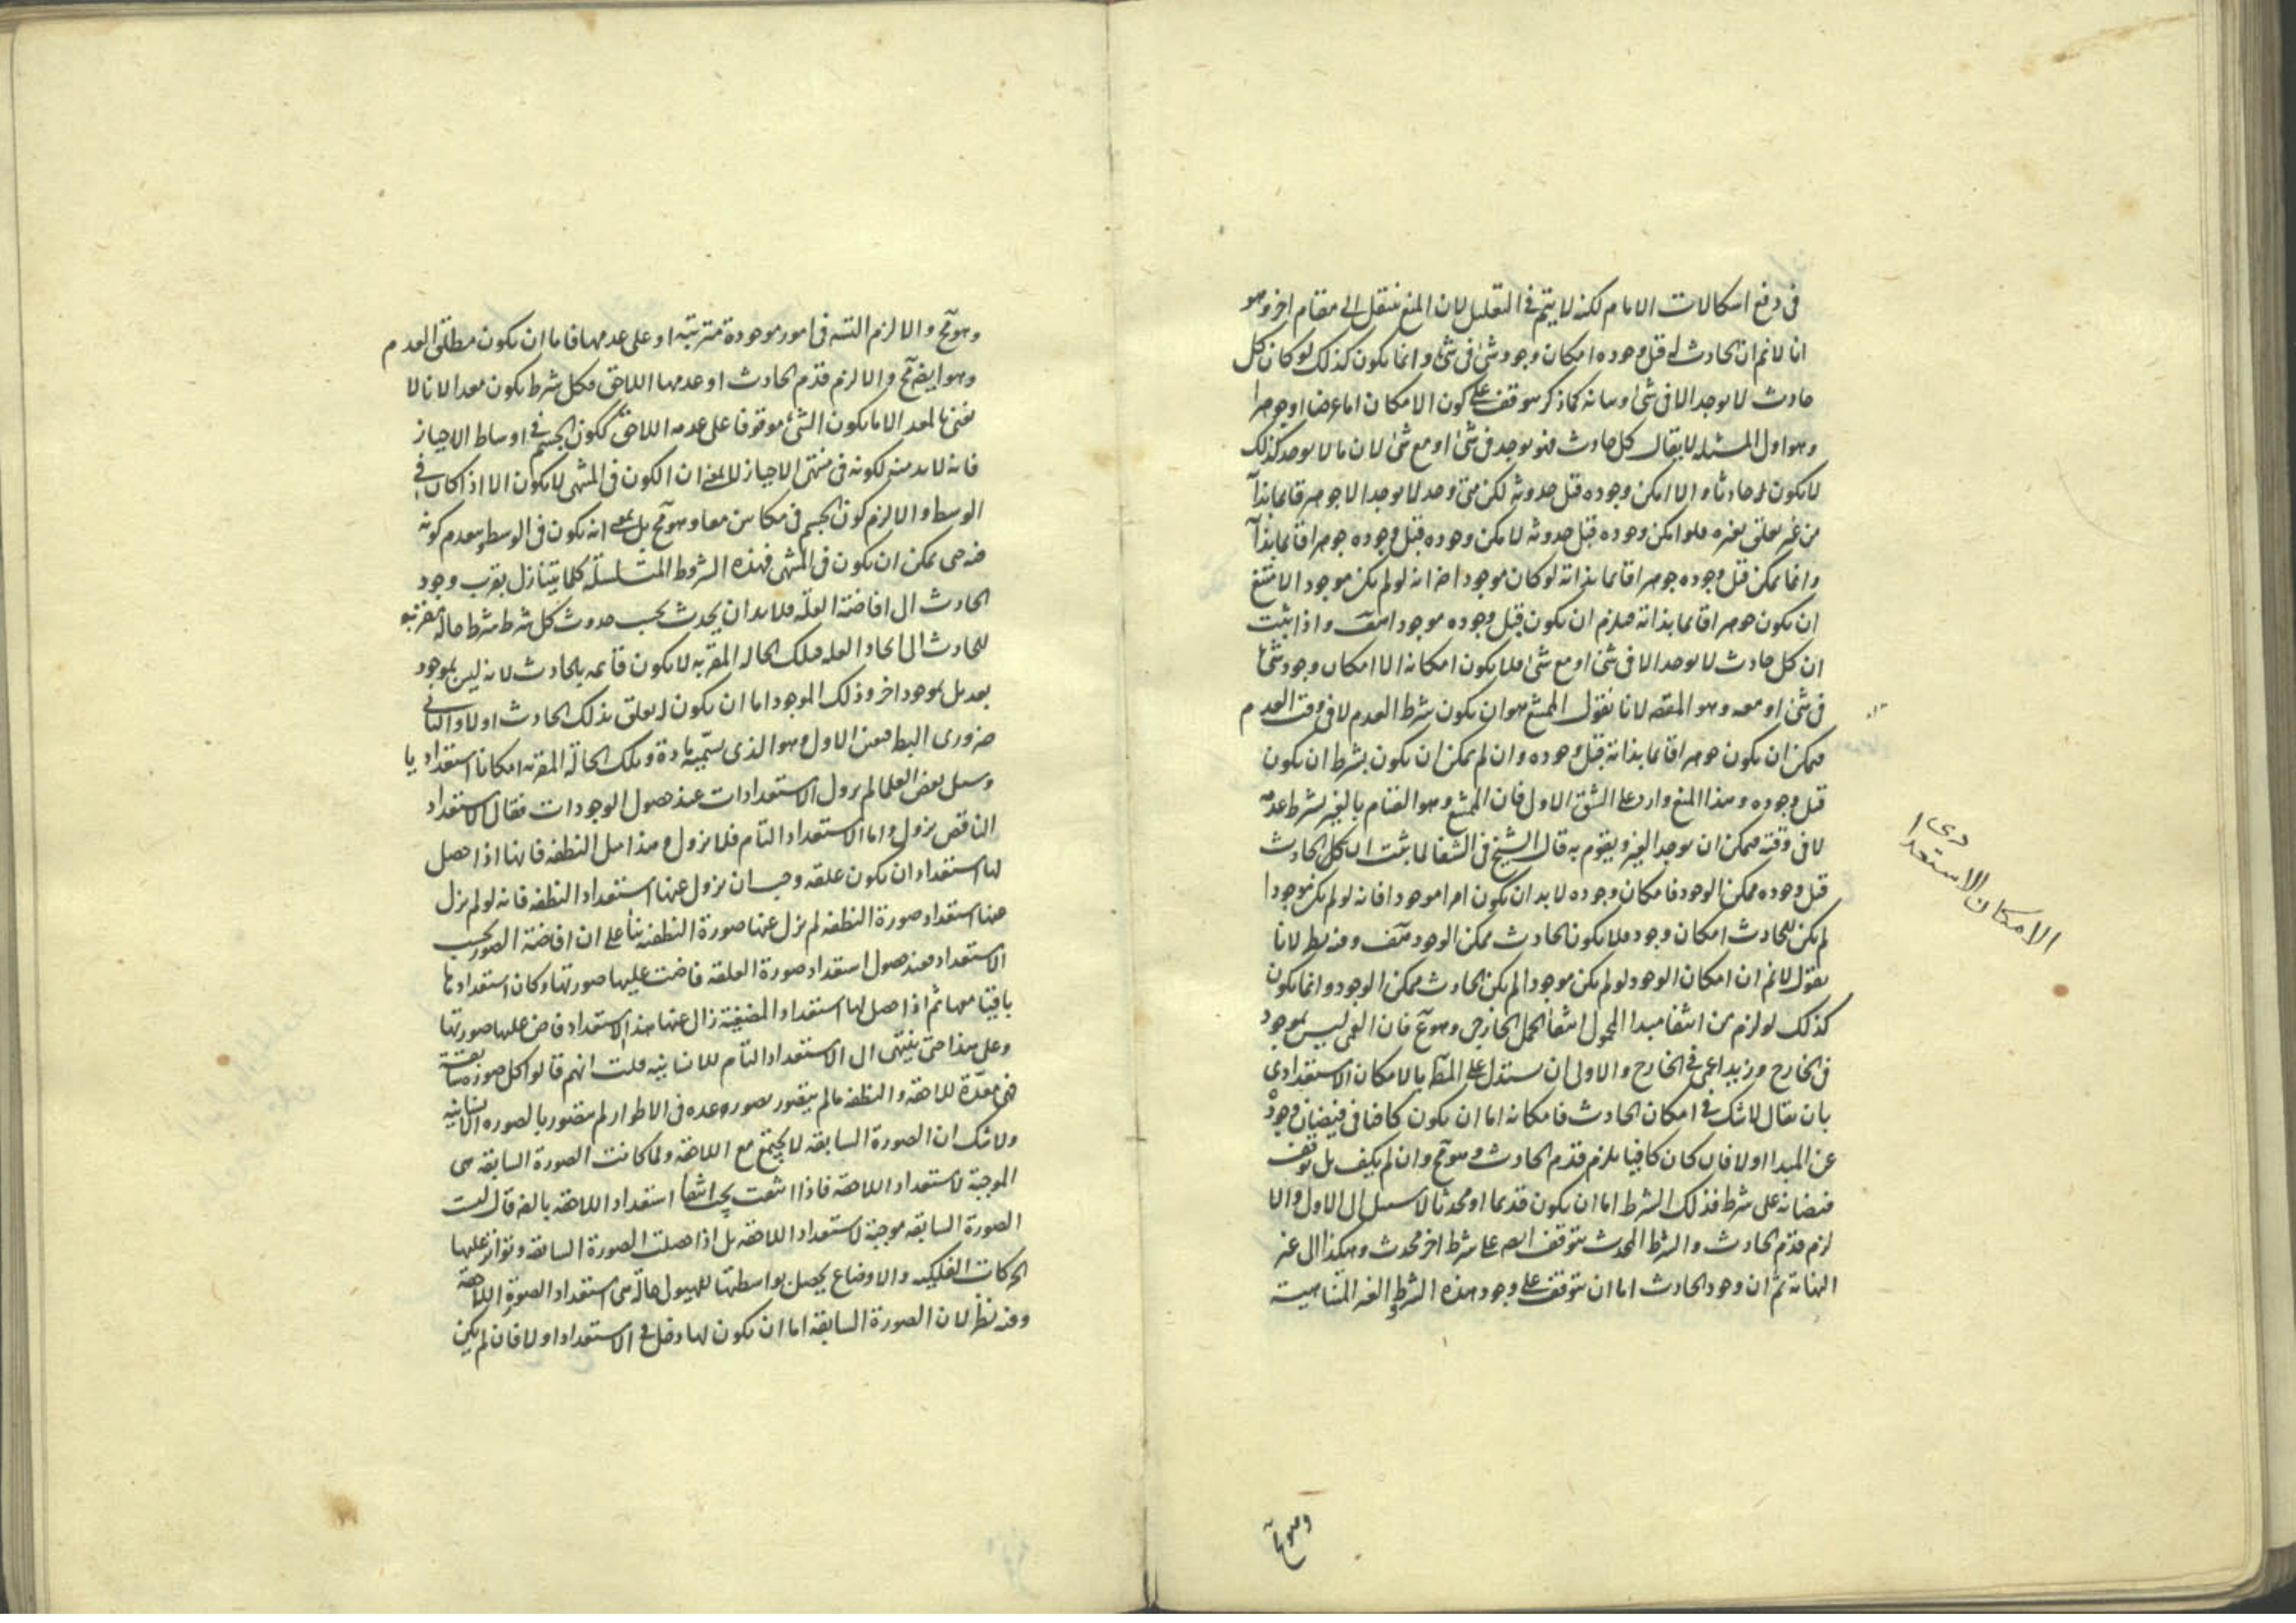 فى دفع اشكالات الامام لكنه لا يتم فى التعليل لان المنع ينتقل الى مقام اخر وهو
انا لانم ان الحادث له قبل وجوده امكان وجود شئ فى شئ وانما يكون كذلك لو كان كل
حادث لا يوجد الا فى شئ وبيانه كما ذكر موقوف على كون الامكان اما عرضا او جوهرا
وهو اول المسئلة لا يقال كل حادث فهو يوجد فى شئ او مع شئ لان ما لا يوجد كذلك
لا يكون حادثا والا امكن وجوده قبل حدوثه لكن متى وجد لا يوجد الا جوهرا قائما بذاته
من غير تعلق بغيره فلو امكن وجوده قبل حدوثه لا يمكن وجوده قبل وجوده جوهرا قائما بذاته
وانما يمكن قبل وجوده جوهرا قائما بذاته لو كان موجودا اذ انه لو لم يكن موجودا لامتنع
ان يكون جوهرا قائما بذاته فيلزم ان يكون قبل وجوده موجودا هف واذا ثبت
ان كل حادث لا يوجد الا فى شئ او مع شئ فلا يكون امكانه الا امكان وجود شئ
فى شئ او معه وهو المقصد لانا نقول الممتنع هو ان يكون بشرط العدم لا فى وقت العدم
فيمكن ان يكون جوهرا قائما بذاته قبل وجوده وان لم يمكن ان يكون بشرط ان يكون
قبل وجوده وهذا المنع وارد على الشق الاول فان الممتنع هو القيام بالغير بشرط عدمه
لا فى وقته فيمكن ان يوجد الغير ويقوم به قال الشيخ فى الشفا لما ثبت ان كل الحادث
قبل وجوده ممكن الوجود فامكان وجوده لا بد ان يكون امرا موجودا فانه لو لم يكن موجودا
لم يكن للحادث امكان وجود فلا يكون الحادث ممكن الوجود هف وفيه نظر لانا
نقول لانم ان امكان الوجود لو لم يكن موجودا لم يكن الحادث ممكن الوجود وانما يكون
كذلك لو لزم من انتفا مبدا المحمول انتفا الحمل الخارجى وهو مم فان العمى ليس بموجود
فى الخارج وزيد اعمى فى الخارج والاولى ان يستدل على المط بالامكان الاستعدادى
بان يقال لا شك فى امكان الحادث فامكانه اما ان يكون كافيا فى فيضان وجوده
عن المبدا اولا فان كان كافيا يلزم قدم الحادث وهو مح وان لم يكف بل توقف
فيضانه على شرط فذلك الشرط اما ان يكون قديما او محدثا لا سبيل الى الاول والا
لزم قدم الحادث والشرط المحدث يتوقف ايضا على شرط اخر محدث وهكذا الى غير
النهاية ثم ان وجود الحادث اما ان يتوقف على وجود هذه الشروط الغير المتناهية
الامكان الاستعدادى
وهو مح
وهو مح والا لزم التسه فى امور موجودة مترتبة او على عدمها فاما ان يكون مطلق العدم
وهو ايضا مح والا لزم قدم الحادث او عدمها اللاحق فكل شرط يكون معدا لانا لا
نعنى بالمعد الا ما يكون الشئ موقوفا على عدمه اللاحق ككون الجسم فى اوساط الاحياز
فانه لا بد منه لكونه فى منتهى الاحياز لا بمعنى ان الكون فى المنتهى لا يكون الا اذا كان فى
الوسط والا لزم كون الجسم فى مكانين معا وهو مح بل بمعنى انه يكون فى الوسط ويعدم كونه
فيه حتى يمكن ان يكون فى المنتهى فهذه الشروط المتسلسلة كلما يتنازل يقرب وجود
الحادث الى افاضة العلة فلا بد ان يحدث بحسب حدوث كل شرط شرط حالة مقربة
للحادث الى ايجاد العلة فتلك الحالة المقربة لا يكون قائمه بالحادث لانه ليس بموجود
بعد بل بموجود اخر وذلك الموجود اما ان يكون له تعلق بذلك الحادث اولا والثانى
ضرورى البط فتعين الاول وهو الذى نسميه مادة وتلك الحالة المقربة امكانا استعداديا
وسئل بعض العلما لم يزول الاستعدادات عند حصول الوجودات فقال الاستعداد
الناقص يزول واما الاستعداد التام فلا يزول وهذا مثل النطفه فانها اذا حصل
لها استعداد ان يكون علقه وجب ان يزول عنها استعداد النطفه فانه لو لم يزل
عنها استعداد صورة النطفه لم يزل عنها صورة النطفيه بنأ على ان افاضة الصور بحسب
الاستعداد فعند حصول استعداد صورة العلقه فاضت عليها صورتها وكان استعدادها
باقيا معها ثم اذا حصل لها استعداد المضغيه زال عنها هذا الاستعداد فاض عليها صورتها
وعلى هذا حتى ينتهى الى الاستعداد التام للانسانيه قلت انهم قالوا كل صورة سابقة
هى معدة للاحقه والنطفه ما لم يتصور بصورة عده فى الاطوار لم يتصور بالصورة الانسانيه
ولا شك ان الصورة السابقه لا يجتمع مع اللاحقه ولما كانت الصورة السابقه هى
الموجبة لاستعداد اللاحقة فاذا انتفت يجب انتفأ استعداد اللاحقة بالضرورة قال ليست
الصورة السابقه موجبة لاستعداد اللاحقه بل اذا حصلت الصورة السابقه وتواتر عليها
الحركات الفلكيه والاوضاع يحصل بواسطتها للهيولى حالة هى استعداد الصورة اللاحقة
وفيه نظر لان الصورة السابقة اما ان يكون لها دخل فى الاستعداد اولا فان لم يكن